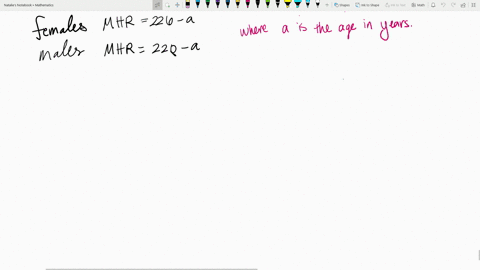 Natalie's Notebook • Mathematics
females MHR = 226 - a
where a is the age in years.
males MHR = 220 - a